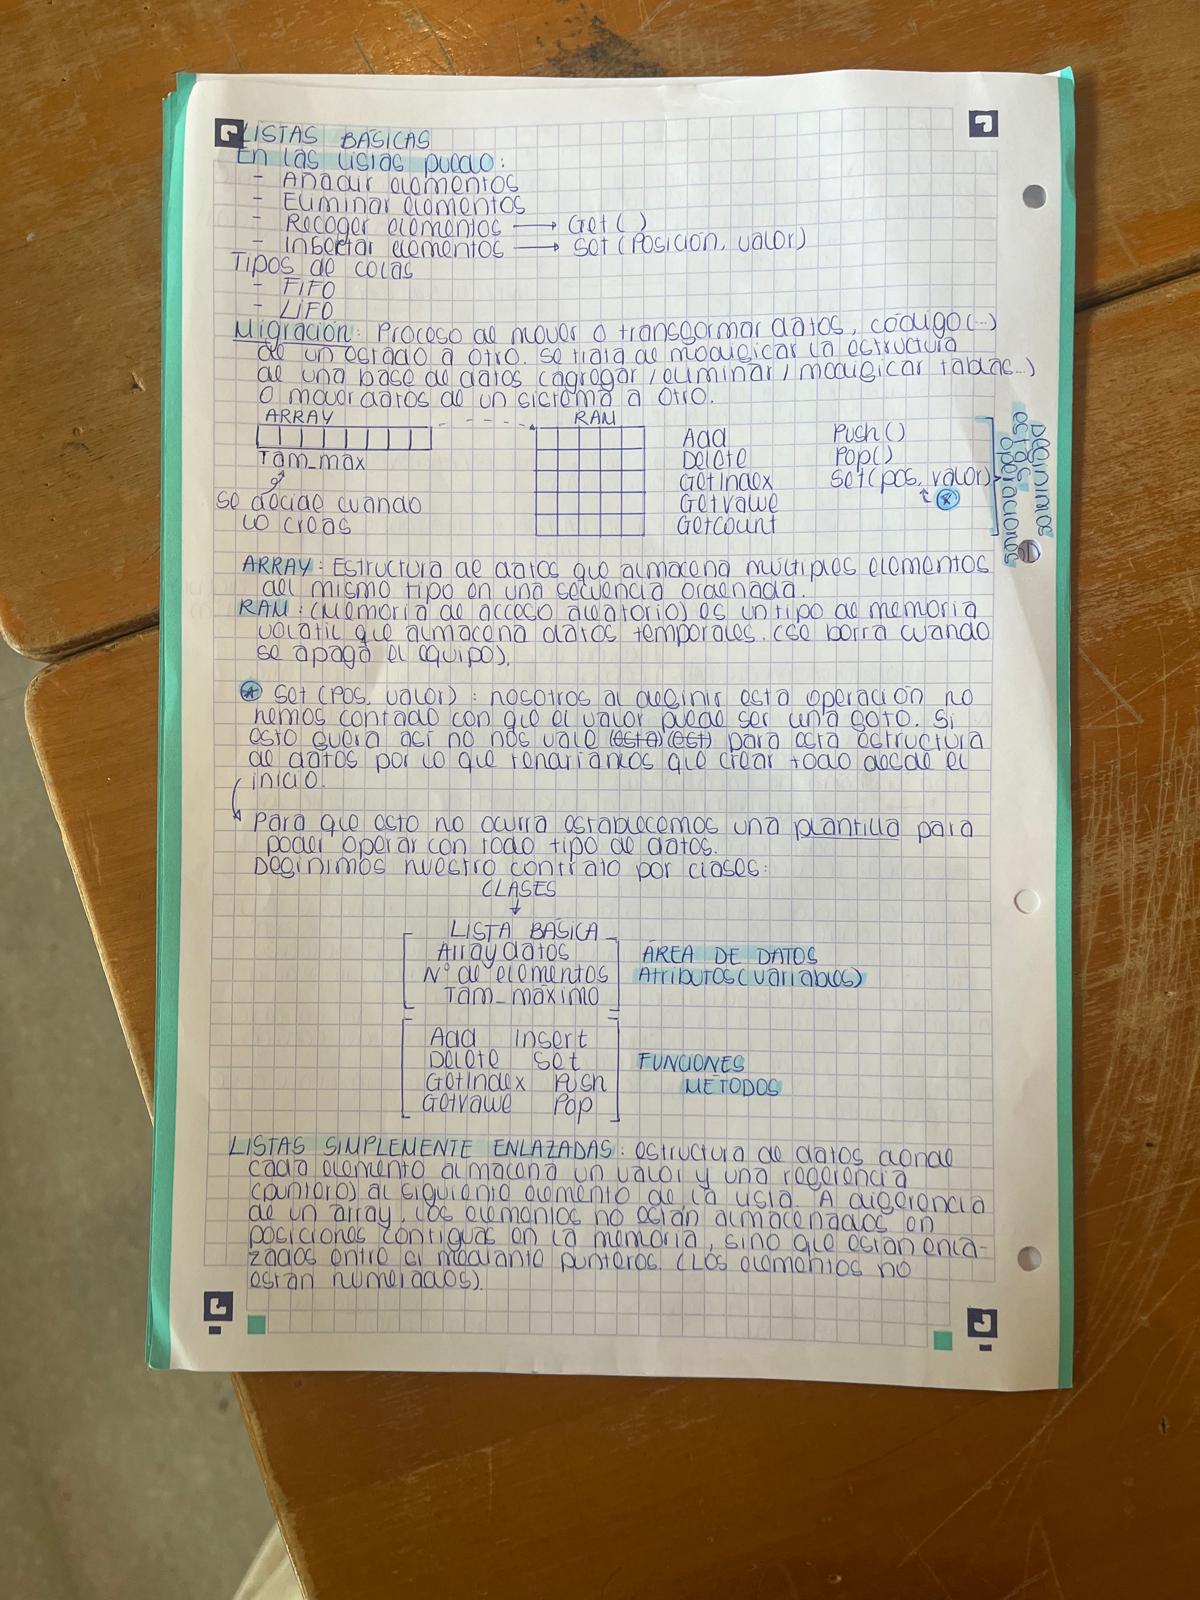 LISTAS BÁSICAS
En las listas puedo:
- Añadir elementos
- Eliminar elementos
- Recoger elementos → Get( )
- Insertar elementos → Set (Posición, valor)
Tipos de colas
- FIFO
- LIFO
Migración: Proceso de mover o transformar datos, código (...)
de un estado a otro. Se trata de modificar la estructura
de una base de datos (agregar/eliminar/modificar tablas...)
o mover datos de un sistema a otro.
ARRAY
Tam_max
Se decide cuando
lo creas
RAM
Add Push()
Delete Pop()
GetIndex Set(pos, valor)
GetValue
GetCount
Definimos
estas
operaciones
ARRAY: Estructura de datos que almacena múltiples elementos
del mismo tipo en una secuencia ordenada.
RAM: (Memoria de acceso aleatorio) es un tipo de memoria
volátil que almacena datos temporales. (Se borra cuando
se apaga el equipo).
Set (pos, valor): nosotros al definir esta operación no
hemos contado con que el valor puede ser una foto. Si
esto fuera así no nos vale (esta) (est) para esta estructura
de datos por lo que tendríamos que crear todo desde el
inicio.
Para que esto no ocurra establecemos una plantilla para
poder operar con todo tipo de datos.
Definimos nuestro contrato por clases:
CLASES
LISTA BÁSICA
Array datos
Nº de elementos
Tam_máximo
ÁREA DE DATOS
Atributos (variables)
Add Insert
Delete Set
GetIndex Push
GetValue Pop
FUNCIONES
MÉTODOS
LISTAS SIMPLEMENTE ENLAZADAS: estructura de datos donde
cada elemento almacena un valor y una referencia
(puntero) al siguiente elemento de la lista. A diferencia
de un array, los elementos no están almacenados en
posiciones contiguas en la memoria, sino que están enla-
zados entre sí mediante punteros. (Los elementos no
están numerados).